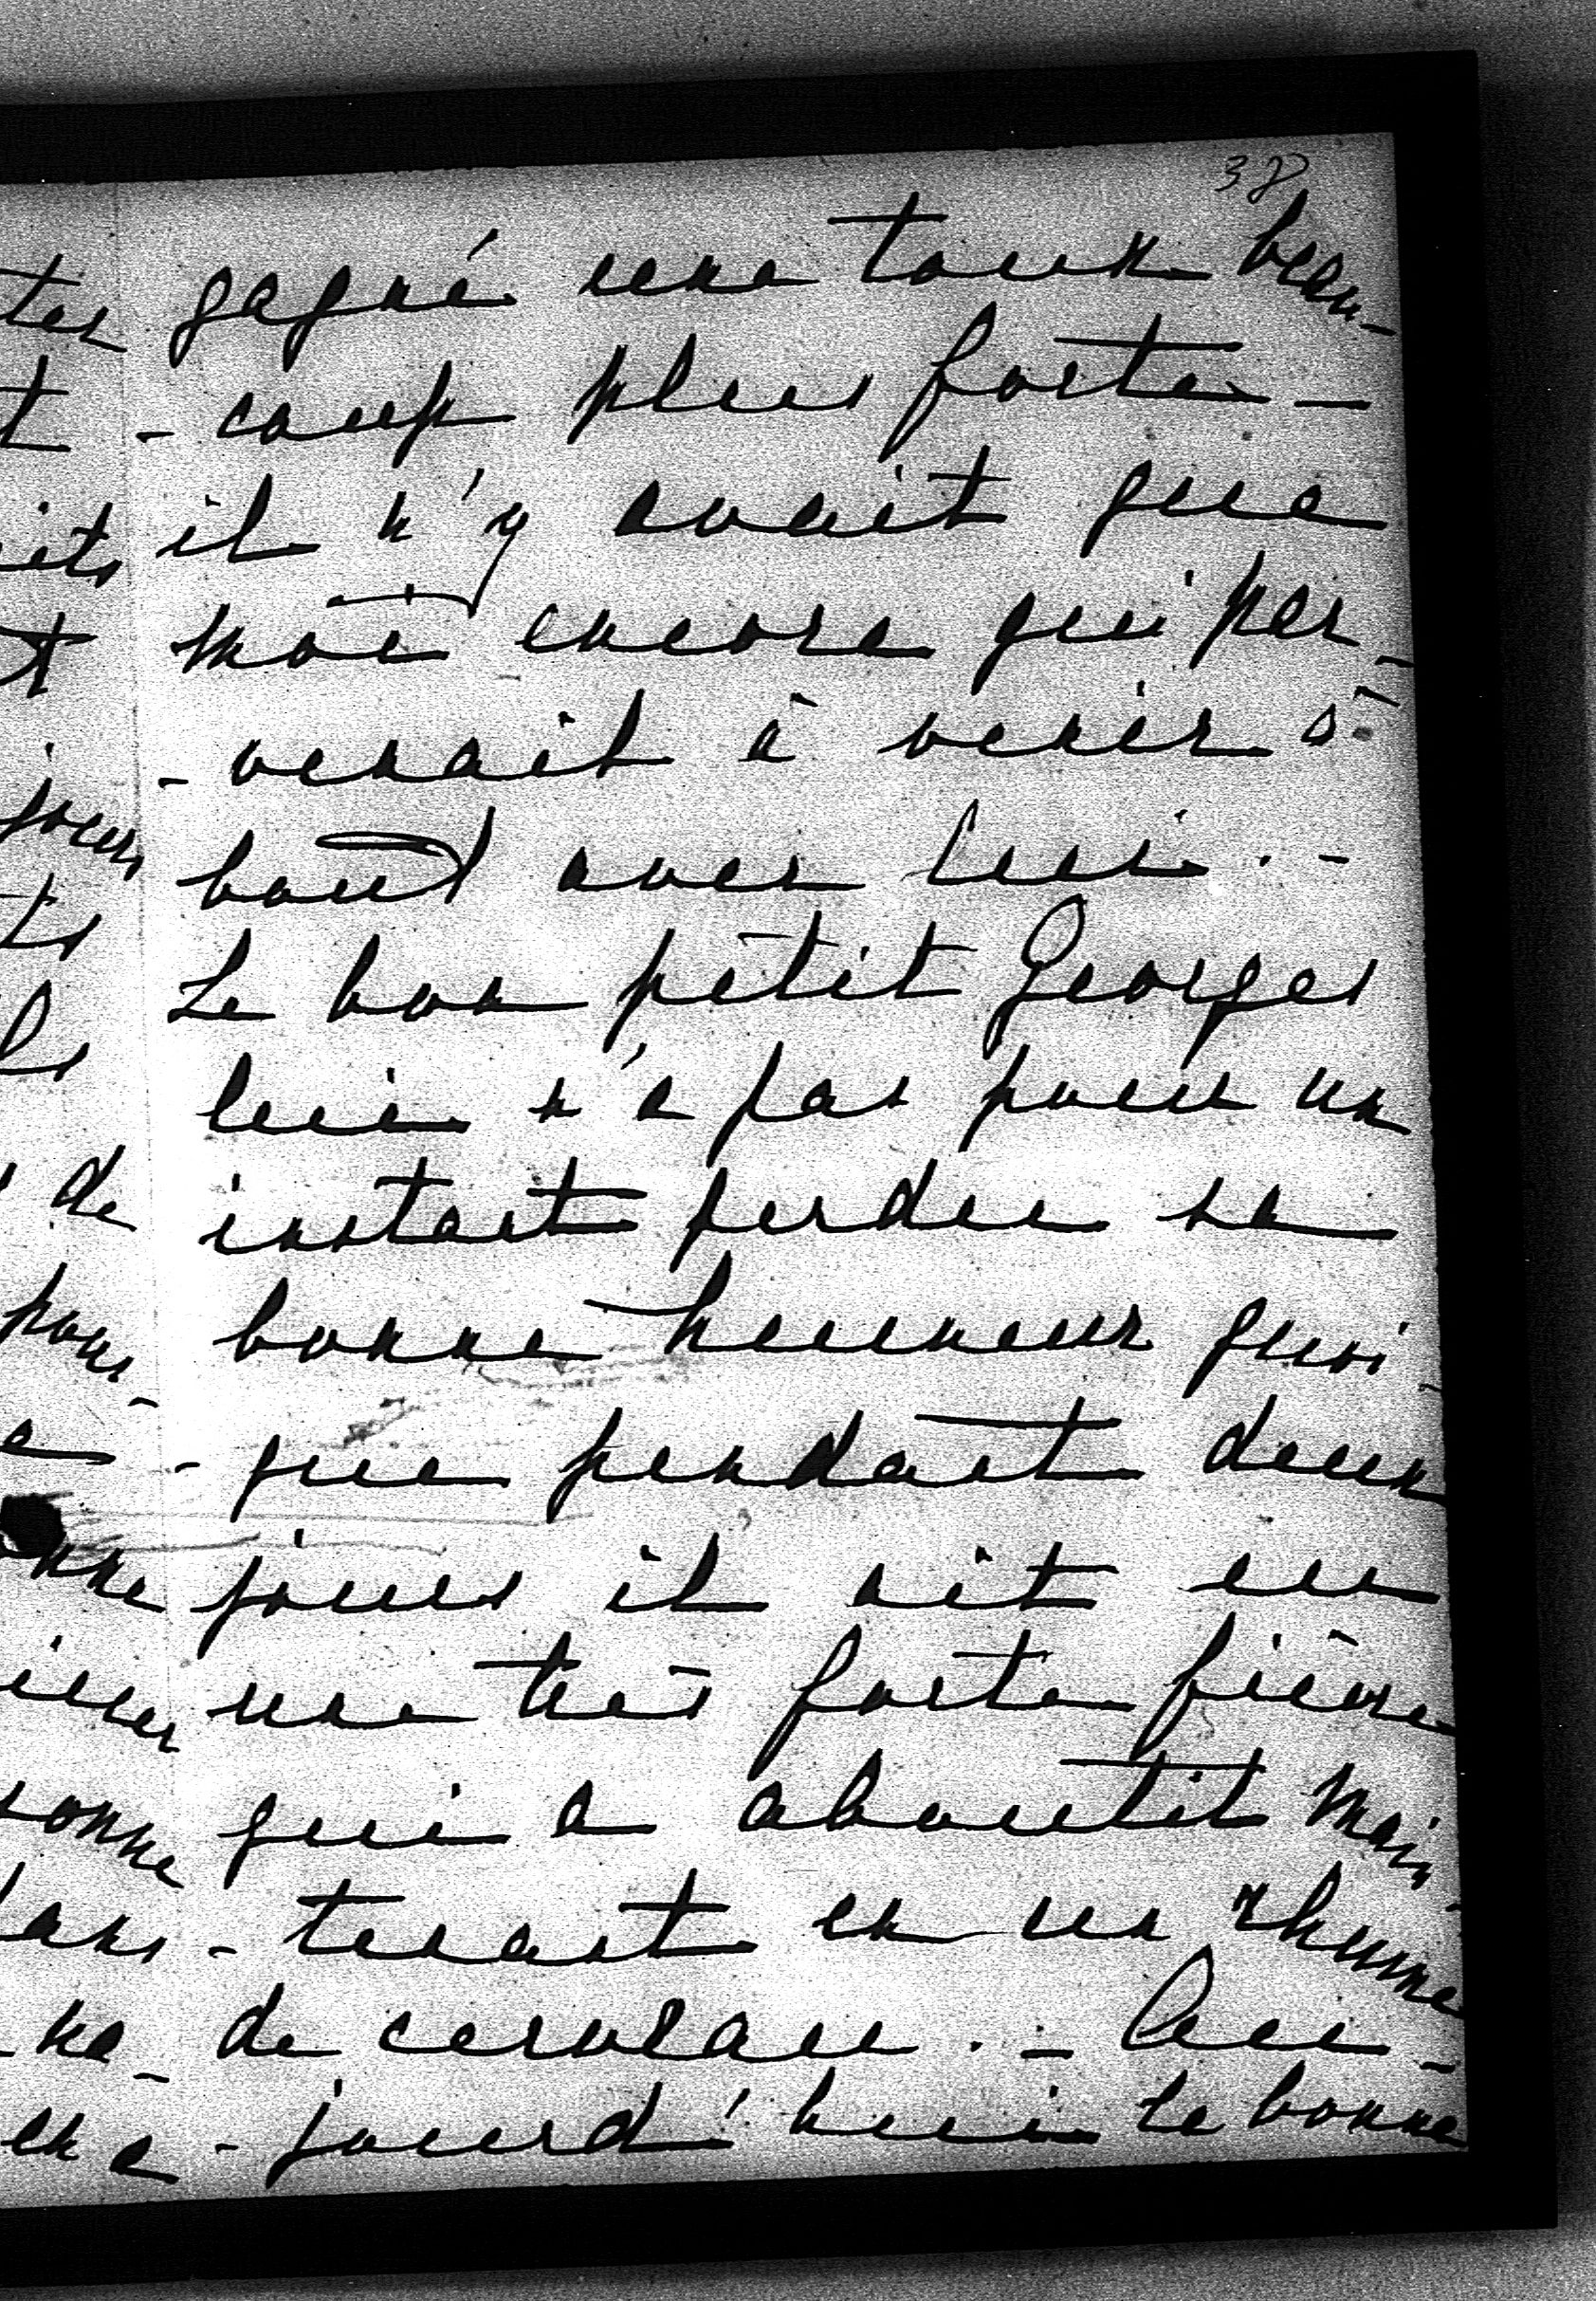 38
gagné une toux beau-
-coup plus forte –
il n'y avait que
moi encore qui par-
-venait à venir à
bout avec lui. –
Le bon petit Georges
lui n'a pas pour un
instant perdu sa
bonne humeur quoi-
-que pendant deux
jours il ait eu
une très forte fièvre
qui a aboutit main-
-tenant en un rhume
de cerveau. – Au-
-jourd'hui la bonne
ter
t
its
t
jours
ts
ls
de
pour-
sonne
ne-
en a